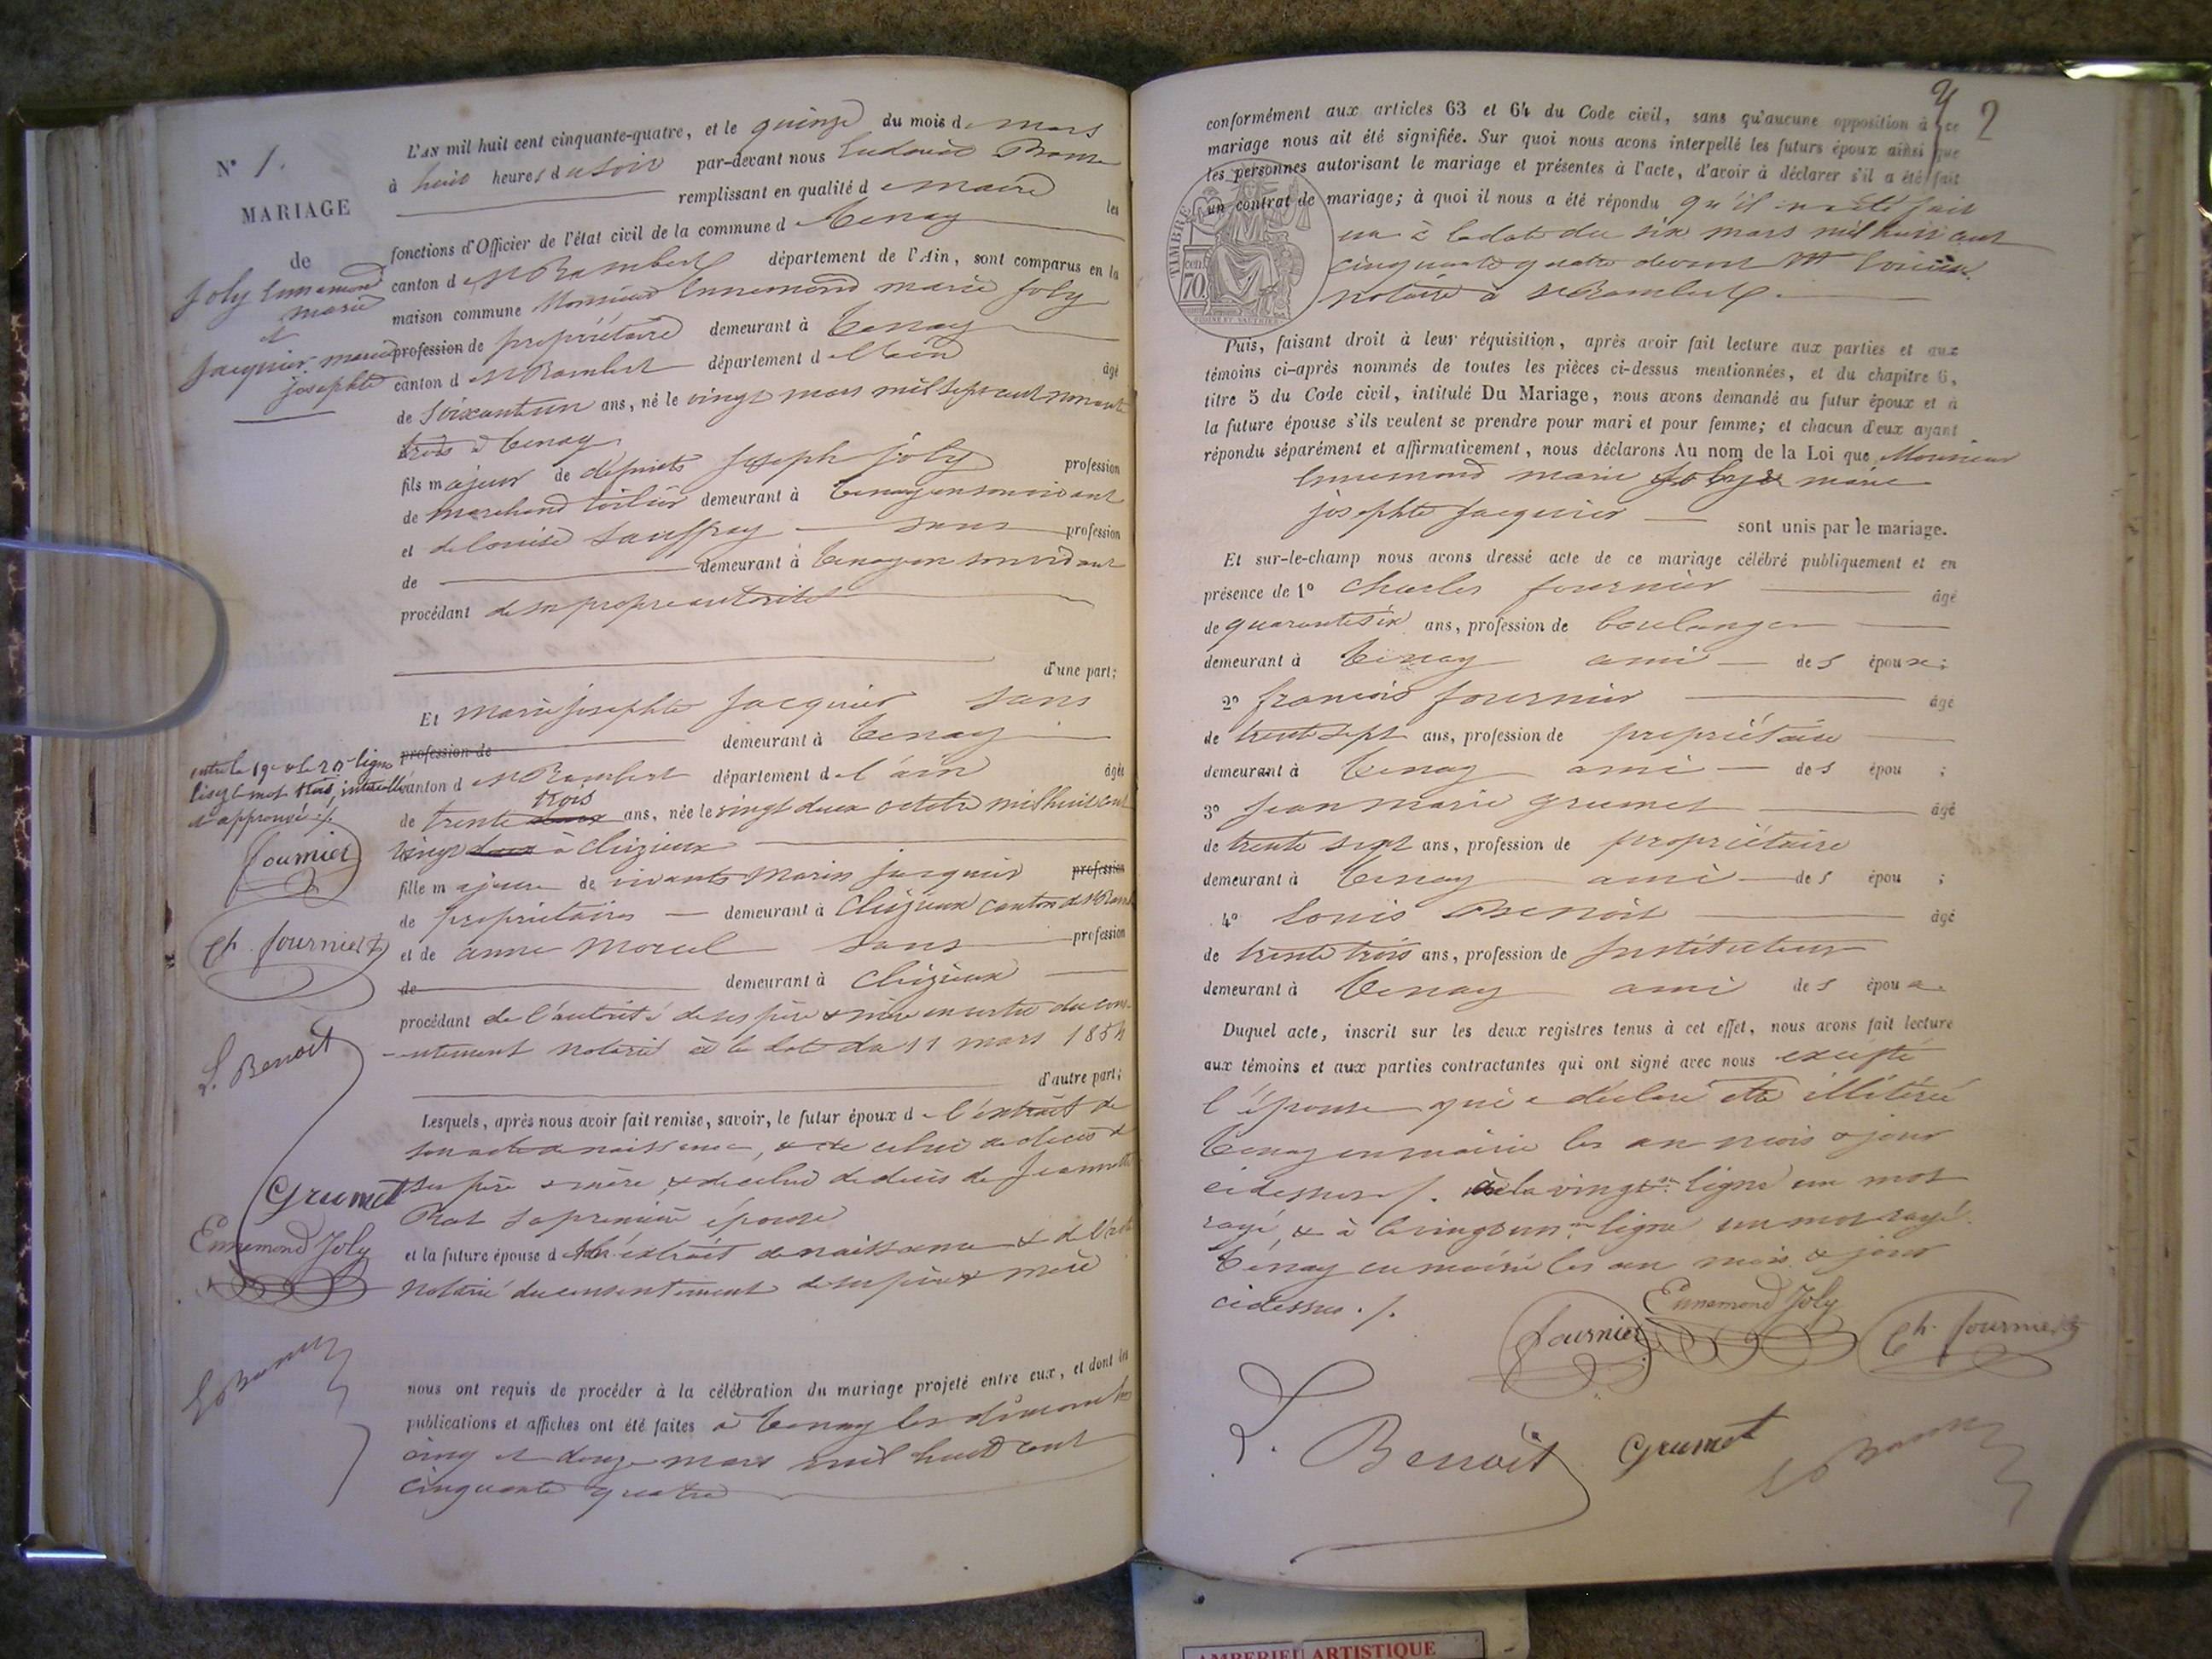 N° 1.
MARIAGE
de
Joly Ennemond
marie
et
Jacquier marie
josephte
L'AN mil huit cent cinquante-quatre, et le quinze du mois de mars
à huit heures du soir par-devant nous Ludovic
remplissant en qualité de maire les
fonctions d'Officier de l'état civil de la commune de Tenay
canton de St Rambert département de l'Ain, sont comparus en la
maison commune Monsieur Ennemond marie Joly
profession de propriétaire demeurant à Tenay
canton de St Rambert département de l'ain âgé
de soixante un ans, né le vingt mars mil sept cent nonante
trois à Tenay
fils majeur de défunts Joseph joly profession
de marchand toilier demeurant à Tenay en son vivant
et de louise Sauffray sans profession
de demeurant à Tenay en son vivant
procédant de sa propre autorité
d'une part;
Et marie josephte Jacquier sans
profession de demeurant à Tenay
canton de St Rambert département de l'ain âgée
trois
de trente deux ans, née le vingt deux octobre mil huit cent
vingt deux à Cleyzieux
fille majeure de vivants Marin Jacquier profession
de propriétaires demeurant à Cleyzieux canton de St Ramb
et de anne Morel sans profession
de demeurant à Cleyzieux
procédant de l'autorité de ses père & mère en vertu du con-
-entement notarié à la date du 11 mars 1854
d'autre part;
entre la 19e & la 20e ligne
lisez le mot trois, intercallé
et approuvé ./.
fournier
Ch. fournier
L. Benoit
Grumet
Ennemond Joly
Lesquels, après nous avoir fait remise, savoir, le futur époux de l'extrait de
son acte de naissance, & de celui de décès de
ses père & mère, & de celui de décès de Jeannette
Rat sa première épouse
et la future épouse de l'extrait de naissance & de l'acte
notarié du consentement de ses père & mère
nous ont requis de procéder à la célébration du mariage projeté entre eux, et dont les
publications et affiches ont été faites à Tenay les dimanches
cinq et douze mars mil huit cent
cinquante quatre
2
conformément aux articles 63 et 64 du Code civil, sans qu'aucune opposition à ce
mariage nous ait été signifiée. Sur quoi nous avons interpellé les futurs époux ainsi que
les personnes autorisant le mariage et présentes à l'acte, d'avoir à déclarer s'il a été fait
un contrat de mariage; à quoi il nous a été répondu qu'il en a été fait
un à la date du six mars mil huit cent
cinquante quatre devant Me
notaire à St Rambert.
TIMBRE
cen.
70.
Puis, faisant droit à leur réquisition, après avoir fait lecture aux parties et aux
témoins ci-après nommés de toutes les pièces ci-dessus mentionnées, et du chapitre 6,
titre 5 du Code civil, intitulé Du Mariage, nous avons demandé au futur époux et à
la future épouse s'ils veulent se prendre pour mari et pour femme; et chacun d'eux ayant
répondu séparément et affirmativement, nous déclarons Au nom de la Loi que Monsieur
Ennemond marie Joly & marie
josephte Jacquier sont unis par le mariage.
Et sur-le-champ nous avons dressé acte de ce mariage célébré publiquement et en
présence de 1° Charles fournier âgé
de quarante six ans, profession de boulanger
demeurant à Tenay ami des époux;
2° françois fournier âgé
de trente sept ans, profession de propriétaire
demeurant à Tenay ami des épou ;
3° Jean Marie grumet âgé
de trente sept ans, profession de propriétaire
demeurant à Tenay ami des épou ;
4° Louis Benoît âgé
de trente trois ans, profession de Instituteur
demeurant à Tenay ami des époux.
Duquel acte, inscrit sur les deux registres tenus à cet effet, nous avons fait lecture
aux témoins et aux parties contractantes qui ont signé avec nous excepté
l'épouse qui a déclaré être illitérée
Tenay en mairie les an mois & jour
ci dessus ./. à la vingt me ligne un mot
rayé, & à la vingt un me ligne un mot rayé.
Tenay en mairie les an mois & jour
ci dessus ./.
Ennemond Joly
fournier
Ch. fournier
L. Benoit
Grumet
AMBERIEU ARTISTIQUE